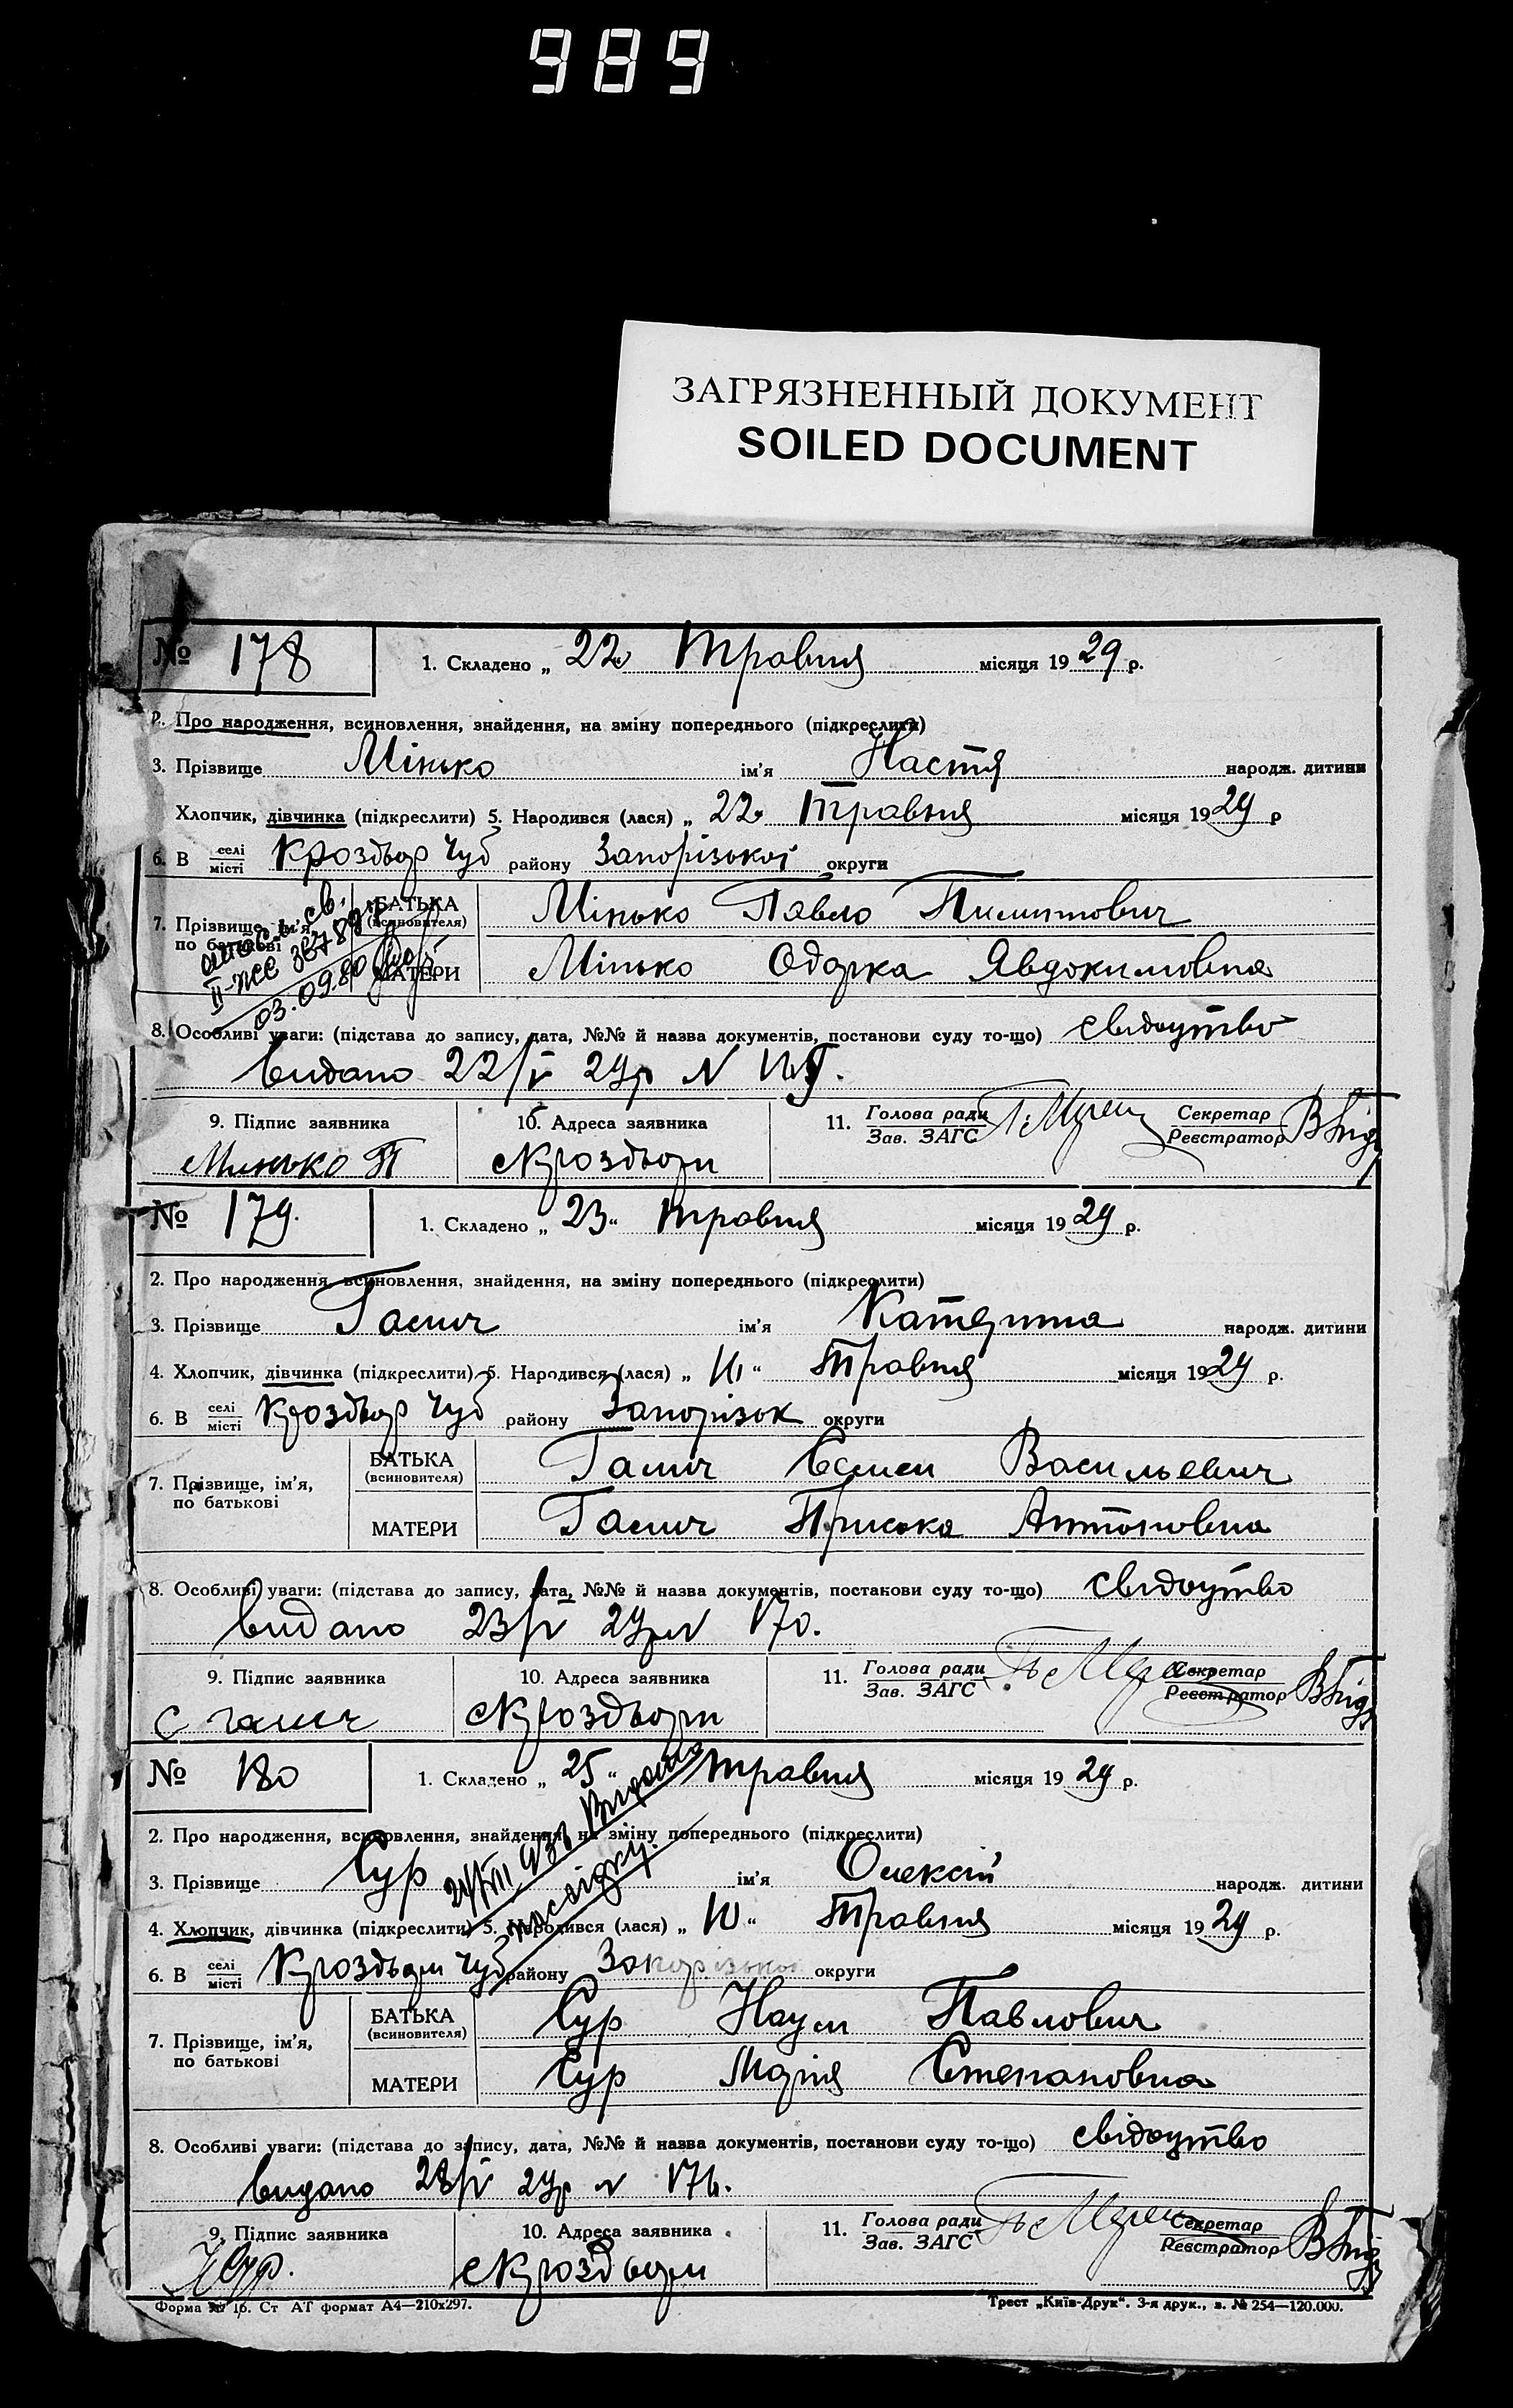 989
ЗАГРЯЗНЕННЫЙ ДОКУМЕНТ
SOILED DOCUMENT
№ 178 1. Складено „ 22 Травня місяця 1929 р.
2. Про народження, всиновлення, знайдення, на зміну попереднього (підкреслити)
3. Прізвище Мінько ім'я Настя народж. дитини
Хлопчик, дівчинка (підкреслити) 5. Народився (лася) „ 22 травня місяця 1929 р
6. В селі місті району Запорізької округи
7. Прізвище, ім'я, по батькові
03.09.80
БАТЬКА (всиновителя) Мінько Павло Пилипович
МАТЕРИ Мінько Одарка Явдокимовна
8. Особливі уваги: (підстава до запису, дата, №№ й назва документів, постанови суду то-що) свидоцтво
видано 22/V 29р N
9. Підпис заявника 10. Адреса заявника 11. Голова ради Зав. ЗАГС Секретар Реєстратор
Минько П
№ 179. 1. Складено „ 23 " травня місяця 1929 р.
2. Про народження, всиновлення, знайдення, на зміну попереднього (підкреслити)
3. Прізвище Галич ім'я Катерина народж. дитини
4. Хлопчик, дівчинка (підкреслити) 5. Народився (лася) „ " Травня місяця 1929 р.
6. В селі місті району Запорізьк округи
7. Прізвище, ім'я, по батькові
БАТЬКА (всиновителя) Галич Васильевич
МАТЕРИ Галич Приська Антоновна
8. Особливі уваги: (підстава до запису, дата, №№ й назва документів, постанови суду то-що) свидоцтво
видано 23/V 29р N 170.
9. Підпис заявника 10. Адреса заявника 11. Голова ради Зав. ЗАГС Секретар Реєстратор
С галич
№ 180 1. Складено „ 25 " травня місяця 1929 р.
2. Про народження, всиновлення, знайдення, на зміну попереднього (підкреслити)
3. Прізвище Сур ім'я Олексій народж. дитини
4. Хлопчик, дівчинка (підкреслити) 5. Народився (лася) „ 10 " Травня місяця 1929 р.
6. В селі місті району Запорізької округи
7. Прізвище, ім'я, по батькові
БАТЬКА (всиновителя) Сур Наум Павлович
МАТЕРИ Сур Марія Степановна
8. Особливі уваги: (підстава до запису, дата, №№ й назва документів, постанови суду то-що) свідоцтво
видано 28/V 29р N
9. Підпис заявника 10. Адреса заявника 11. Голова ради Зав. ЗАГС Секретар Реєстратор
Форма № 16. Ст АТ формат А4—210х297. Трест „Київ-Друк". 3-я друк., з. № 254—120.000.